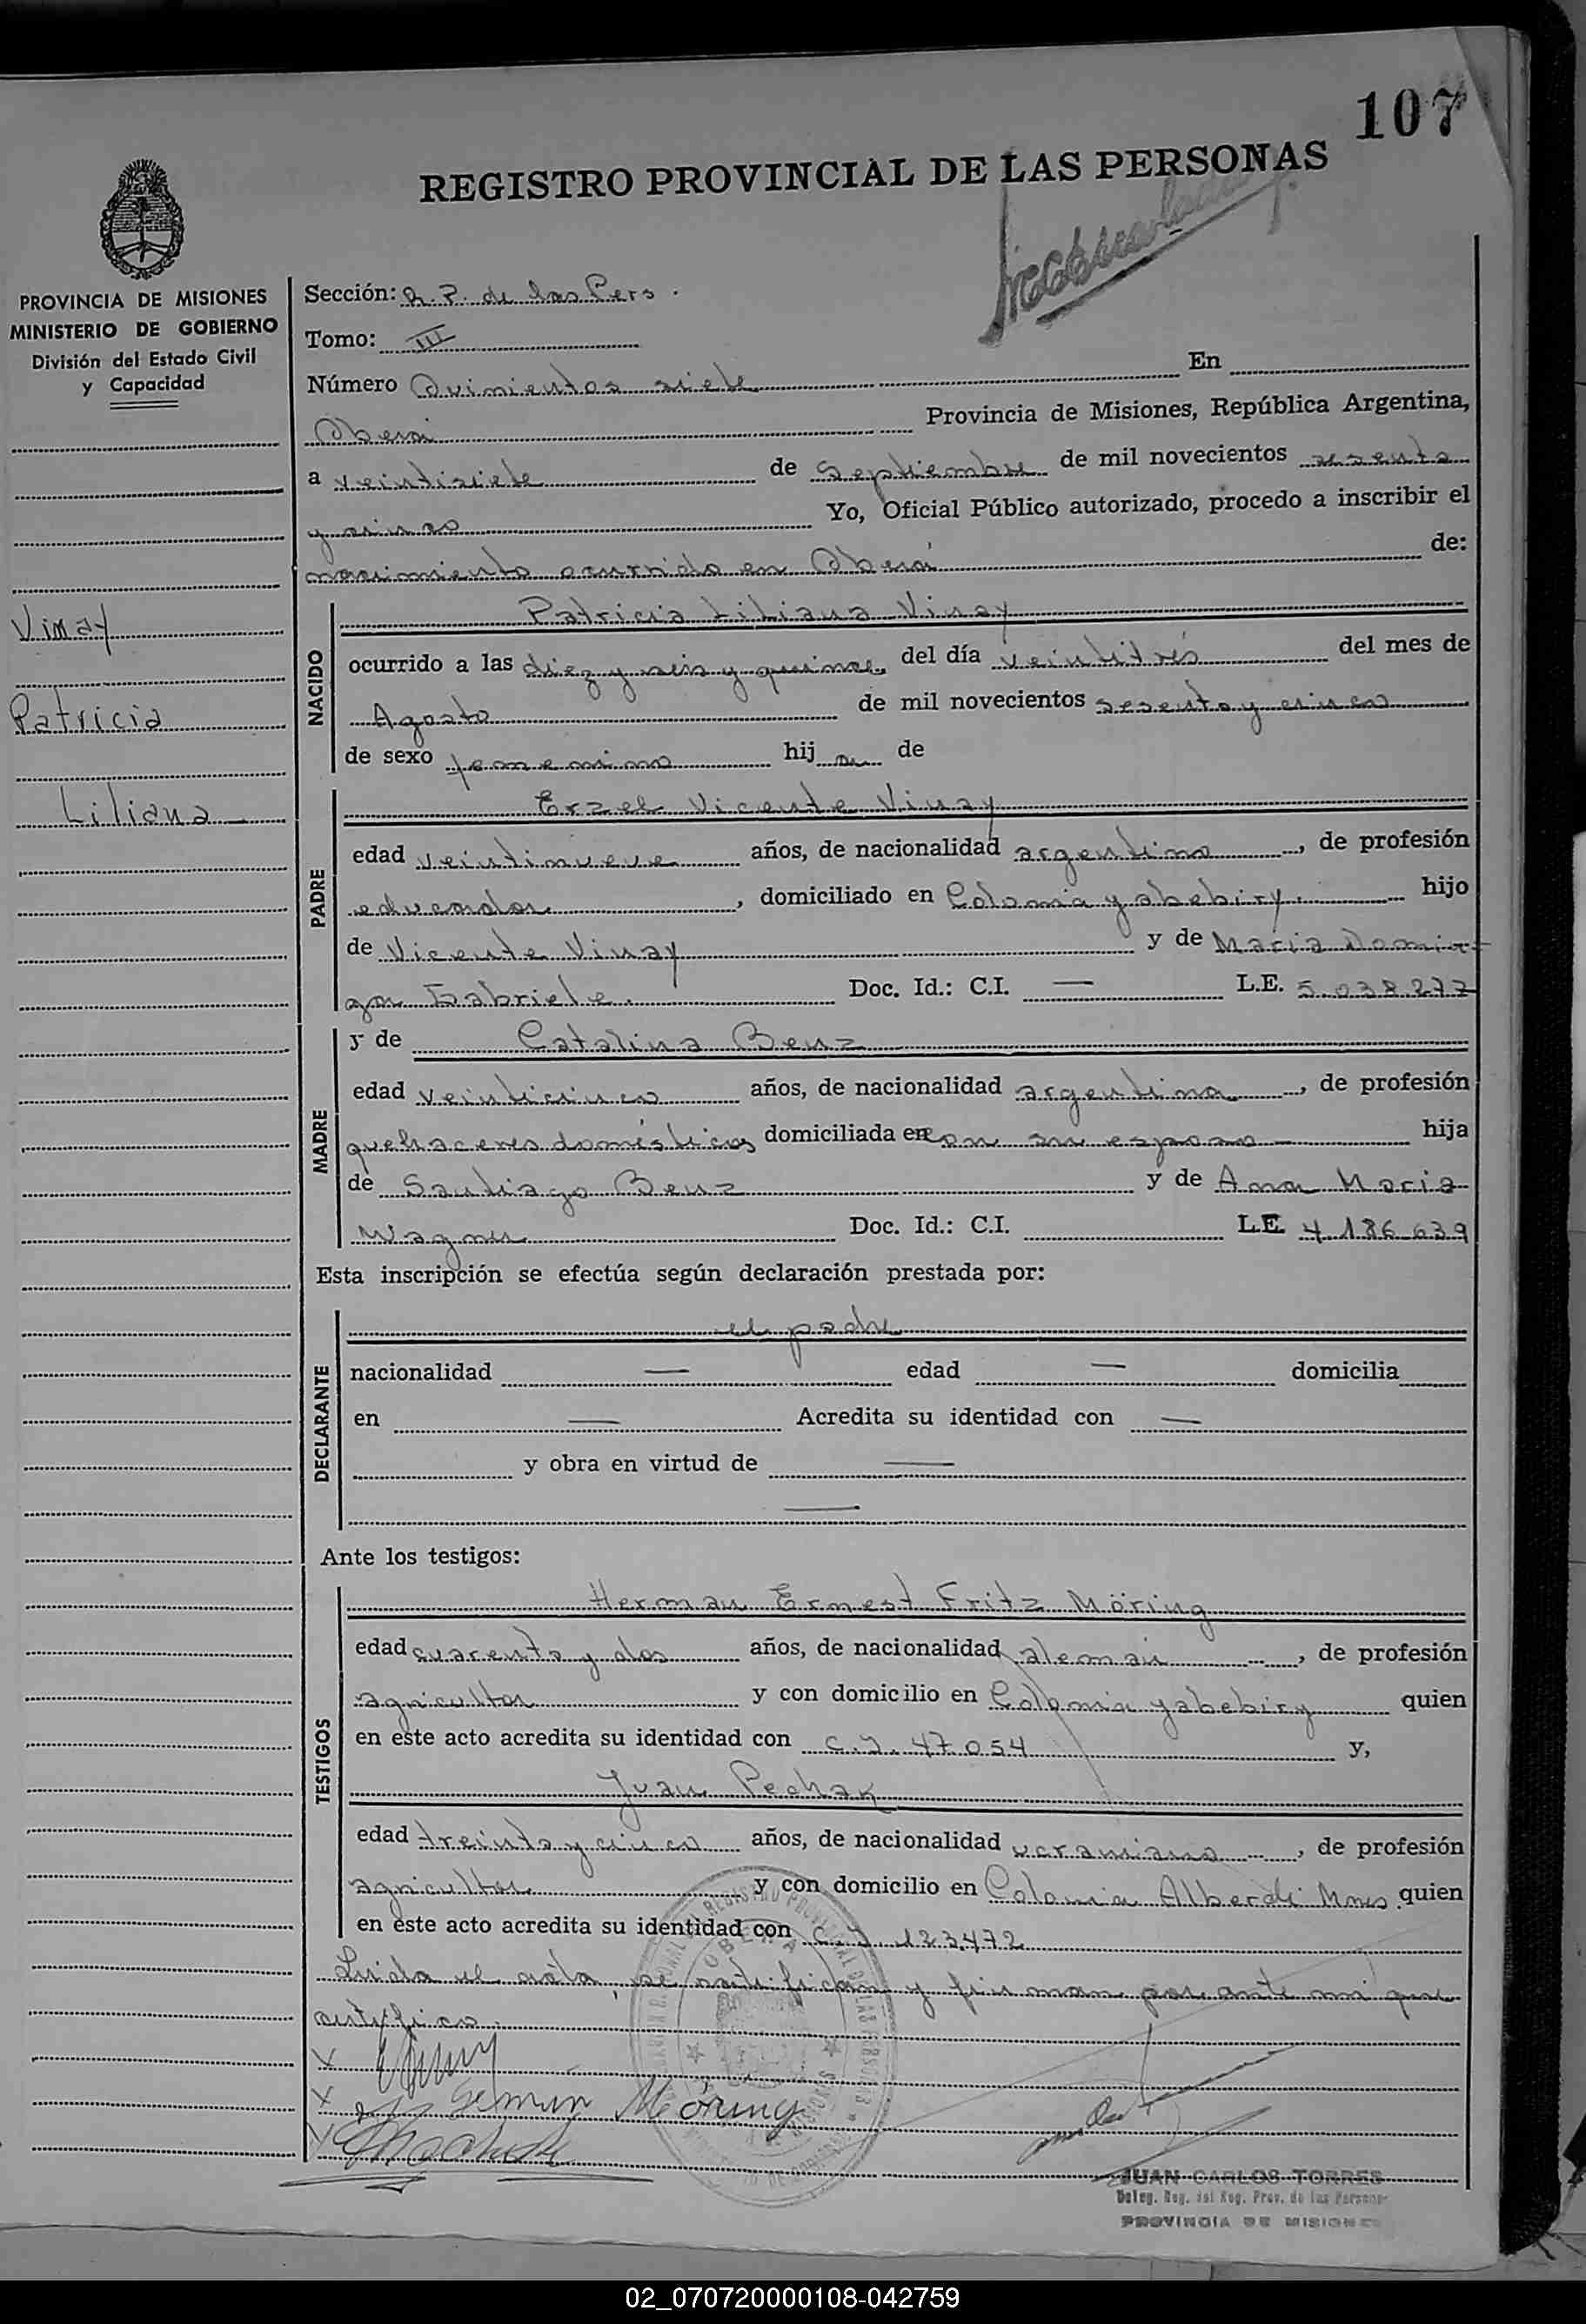 107
REGISTRO PROVINCIAL DE LAS PERSONAS
PROVINCIA DE MISIONES
MINISTERIO DE GOBIERNO
División del Estado Civil
y Capacidad
Vinay
Patricia
Liliana
Sección: R. P. de las Pers.
Tomo: III
Número Quinientos siete En
Oberá Provincia de Misiones, República Argentina,
a veintisiete de Septiembre de mil novecientos sesenta
y cinco Yo, Oficial Público autorizado, procedo a inscribir el
nacimiento ocurrido en Oberá de:
NACIDO
Patricia Liliana Vinay
ocurrido a las diez y seis y quince del día veintitrés del mes de
Agosto de mil novecientos sesenta y cinco
de sexo femenino hija de
PADRE
Erzel Vicente Vinay
edad veintinueve años, de nacionalidad argentino, de profesión
educador, domiciliado en Colonia Yabebiry. hijo
de Vicente Vinay y de María Domin
ga Gabriele. Doc. Id.: C.I. — L.E. 5.038.277
MADRE
y de Catalina Benz
edad veinticinco años, de nacionalidad argentina, de profesión
quehaceres domésticos domiciliada en con su esposo hija
de Santiago Benz y de Ana María
Wagner Doc. Id.: C.I. L.E. 4.186.639
Esta inscripción se efectúa según declaración prestada por:
DECLARANTE
el padre
nacionalidad — edad — domicilia
en — Acredita su identidad con —
y obra en virtud de —
—
Ante los testigos:
TESTIGOS
Herman Ernest Fritz Möring
edad cuarenta y dos años, de nacionalidad alemán, de profesión
agricultor y con domicilio en Colonia Yabebiry quien
en este acto acredita su identidad con C.I. 47.054 y,
Juan Pechak
edad treinta y cinco años, de nacionalidad ucraniano, de profesión
agricultor y con domicilio en Colonia Alberdi Mnes quien
en este acto acredita su identidad con C.I. 123.472
Leida el acta, se ratifican y firman por ante mi que
certifico.
Möring
JUAN CARLOS TORRES
Deleg. Reg. del Reg. Prov. de las Personas
PROVINCIA DE MISIONES
02_070720000108-042759